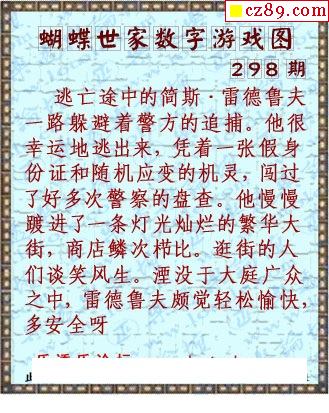 cz89.com
蝴蝶世家数字游戏图
298期
逃亡途中的简斯·雷德鲁夫
一路躲避着警方的追捕。他很
幸运地逃出来，凭着一张假身
份证和随机应变的机灵，闯过
了好多次警察的盘查。他慢慢
踱进了一条灯光灿烂的繁华大
街，商店鳞次栉比。逛街的人
们谈笑风生。湮没于大庭广众
之中，雷德鲁夫颇觉轻松愉快，
多安全呀